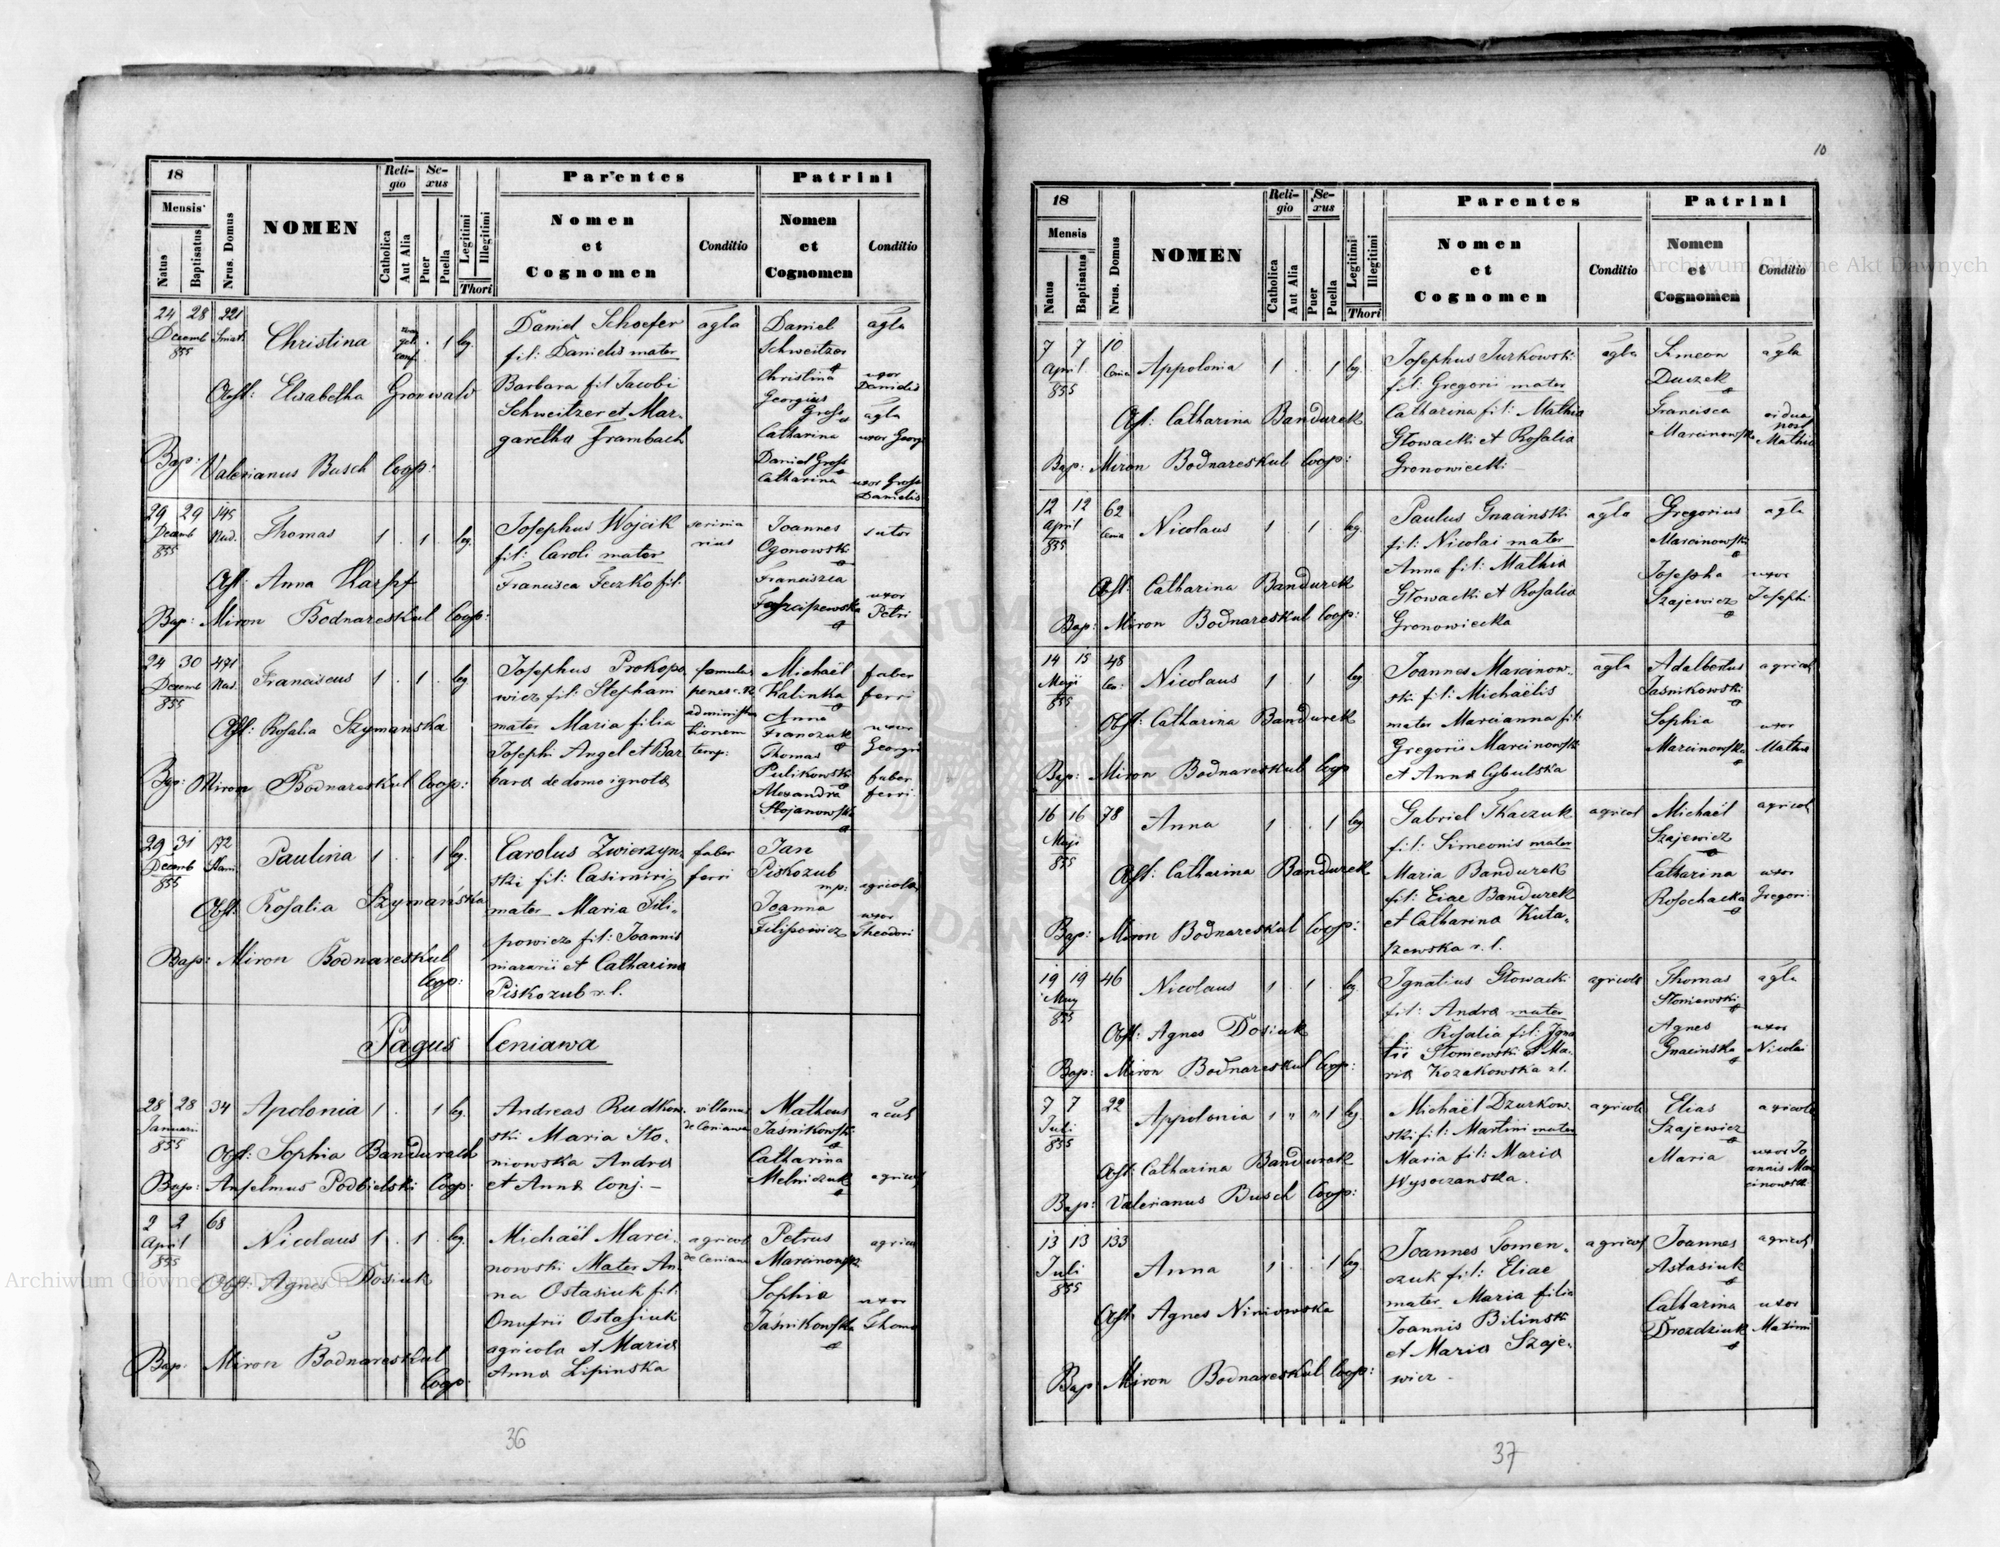 18
Mensis
Natus
Baptisatus
Nrus. Domus
NOMEN
Reli-
gio
Catholica
Aut Alia
Se-
xus
Puer
Puella
Legitimi
Illegitimi
Thori
Parentes
Nomen
et
Cognomen
Conditio
Patrini
Nomen
et
Cognomen
Conditio
24 28 221
Decemb
855
Christina 1 leg.
Obst: Elisabetha Gronwald
Bap: Valerianus Busch Coop:
Daniel Schoefer
fil: Danielis mater
Barbara fil Jacobi
Schweitzer et Mar-
garetha Frambach
agla
Daniel
Schweitzer
Christina
Georgius
Gross
Catharina
Daniel Gross
Catharina
agla
uxor
Danielis
agla
uxor Georgi
uxor Gross
Danielis
29 29 145
Decemb
855
Thomas 1 . 1 . leg.
Obst: Anna Karpf
Bap: Miron Bodnareskul Coop:
Josephus Wojcik
fil: Caroli mater
Francisca Feczko fil:
Joannes
Ogonowski
Francisca
sutor
uxor
Petri
24 30 471
Decemb
855
Franciscus 1 . 1 . leg
Obst: Rosalia Szymanska
Bap: Miron Bodnareskul Coop:
Josephus Prokopo
wicz fil: Stephani
mater Maria filia
Josephi Angel et Bar
bara de domo ignota
famulus
penes
administra
tionem
temp:
Michaël
Kalinka
Anna
Franczuk
Thomas
Pulikowski
Alexandra
Stojanowski
faber
ferri
uxor
Georgii
faber
ferri
29 31 172
Decemb
855
Paulina 1 . . 1 leg.
Obst: Rosalia Szymańska
Bap: Miron Bodnareskul
Coop:
Carolus Zwierzyn-
ski fil: Casimiri
mater Maria Fili-
powicz fil: Joannis
et Catharina
Piskozub r. l.
faber
ferri
Jan
Piskozub
mp:
Joanna
Filipowicz
agricola
uxor
Theodori
Pagus Ceniawa
28 28 34
Januari
855
Apolonia 1 . 1 leg.
Obst: Sophia Bandurak
Bap: Anselmus Podbielski Coop:
Andreas Rudkow-
ski Maria Sto-
niowska Andra
et Anna Conj. -
villanus
de Ceniawa
Matheus
Jaśnikowski
Catharina
Melniczuk
agricol
2 2 68
April
855
Nicolaus 1 . 1 . leg.
Obst: Agnes Dosiuk
Bap: Miron Bodnareskul
Coop:
Michaël Marci-
nowski Mater An-
na Ostasiuk fil:
Onufrii Ostasiuk
agricola et Maria
Anna Lipinska
agricol
de Ceniawa
Petrus
Marcinowski
Sophia
Jaśnikowska
agricol
uxor
Thoma
36
10
18
Mensis
Natus
Baptisatus
Nrus. Domus
NOMEN
Reli-
gio
Catholica
Aut Alia
Se-
xus
Puer
Puella
Legitimi
Illegitimi
Thori
Parentes
Nomen
et
Cognomen
Conditio
Patrini
Nomen
et
Cognomen
Conditio
7 7 10
April
855
Appolonia 1 . . 1 leg.
Obst: Catharina Bandurek
Bap: Miron Bodnareskul Coop:
Josephus Turkowski
fil: Gregorii mater
Catharina fil: Mathia
Głowacki et Rosalia
Gronowiecki
agla
Simeon
Duczek
Francisca
Marcinowska
agla
vidua
post
Mathia
12 12 62
April
855
Nicolaus 1 . 1 . leg.
Obst: Catharina Bandurek
Bap: Miron Bodnareskul Coop:
Paulus Gnacinski
fil: Nicolai mater
Anna fil: Mathia
Głowacki et Rosalia
Gronowiecka
agla
Gregorius
Marcinowski
Josepha
Szajewicz
agla
uxor
Josephi
14 15 48
Maji
855
Nicolaus 1 . 1 . leg
Obst: Catharina Bandurek
Bap: Miron Bodnareskul Coop
Joannes Marcinow-
ski fil: Michaëlis
mater Marcianna fil:
Gregorii Marcinowski
et Anna Cybulska
agla
Adalbertus
Jasnikowski
Sophia
Marcinowska
agricol
uxor
Mathia
16 16 78
Maji
855
Anna 1 . . 1 leg
Obst: Catharina Bandurek
Bap: Miron Bodnareskul Coop:
Gabriel Tkaczuk
fil: Simeonis mater
Maria Bandurek
fil: Eiae Bandurek
et Catharina Kuta-
szewska r. l.
agricol
Michaël
Szajewicz
Catharina
Rosochacka
agricol
uxor
Gregori:
19 19 46
May
855
Nicolaus 1 . 1 . leg.
Obst: Agnes Dosiuk
Bap: Miron Bodnareskul Coop:
Ignatius Głowacki
fil: Andra mater
Rosalia fil: Igna
tii Słoniewski et Ma-
ria Kozakowska r. l.
agricola
Thomas
Słoniewski
Agnes
Gnacinska
agla
uxor
Nicolai
7 7 22
Juli
855
Appolonia 1 " " 1 leg.
Obst: Catharina Bandurak
Bap: Valerianus Busch Coop:
Michaël Dzurkow-
ski fil: Martini mater
Maria fil: Maria
Wysoczanska.
agricola
Elias
Szajewicz
Maria
agricola
uxor Jo
annis Mar
cinowski
13 13 133
Juli
855
Anna 1 . . 1 leg
Obst: Agnes Niniowska
Bap: Miron Bodnareskul Coop:
Joannes Tomen-
czuk fil: Eliae
mater Maria filia
Joannis Bilinski
et Maria Szaje-
wicz
agricol
Joannes
Astasiuk
Catharina
Drozdziuk
agricol
uxor
Maximi
37
Archiwum Główne Akt Dawnych
Archiwum Główne Akt Dawnych